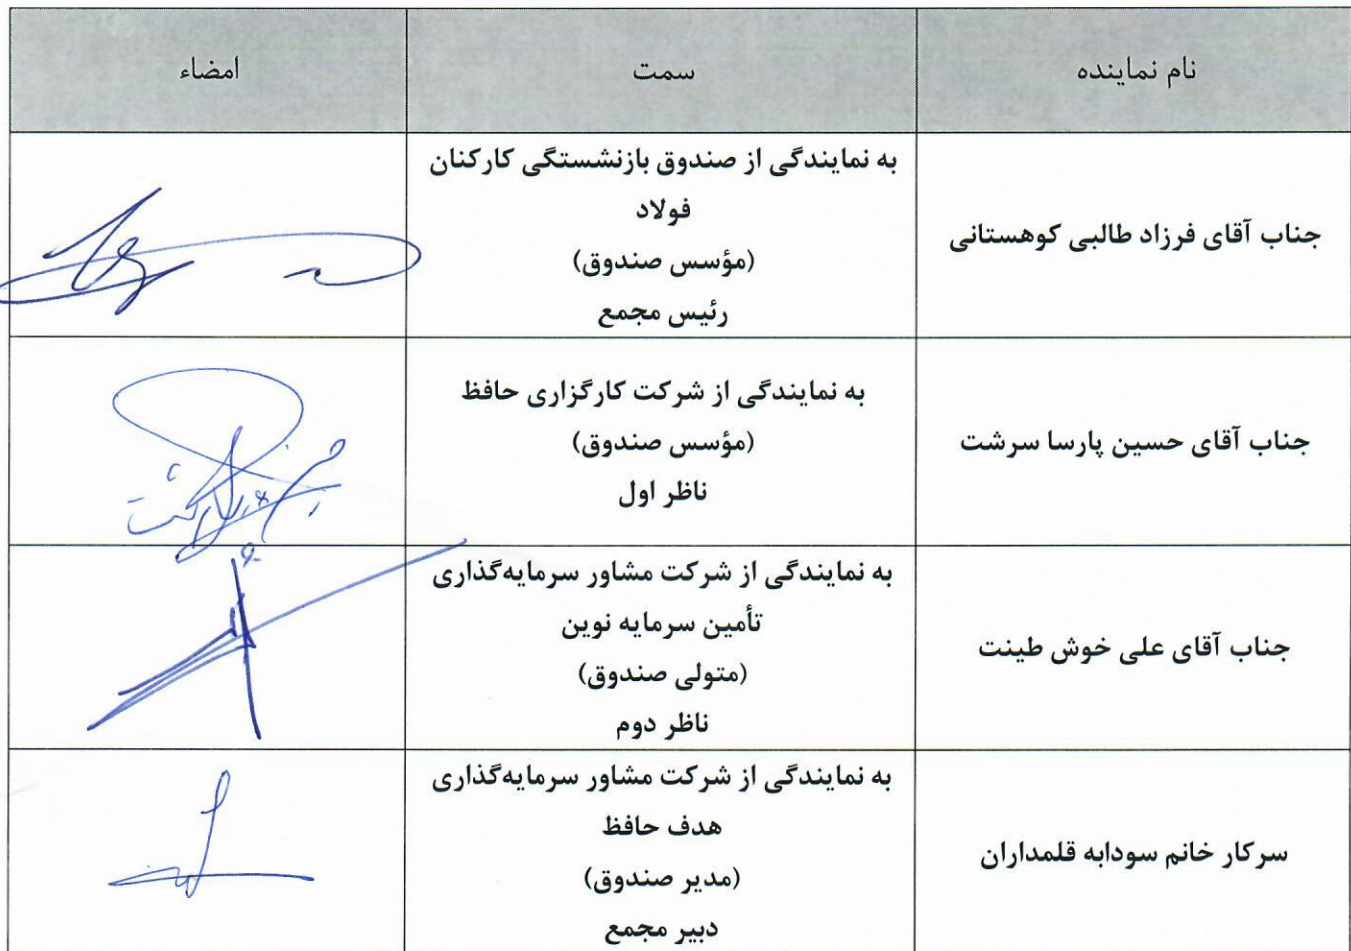 نام نماینده
سمت
امضاء
جناب آقای فرزاد طالبی کوهستانی
به نمایندگی از صندوق بازنشستگی کارکنان
فولاد
(مؤسس صندوق)
رئیس مجمع
جناب آقای حسین پارسا سرشت
به نمایندگی از شرکت کارگزاری حافظ
(مؤسس صندوق)
ناظر اول
جناب آقای علی خوش طینت
به نمایندگی از شرکت مشاور سرمایه‌گذاری
تأمین سرمایه نوین
(متولی صندوق)
ناظر دوم
سرکار خانم سودابه قلمداران
به نمایندگی از شرکت مشاور سرمایه‌گذاری
هدف حافظ
(مدیر صندوق)
دبیر مجمع